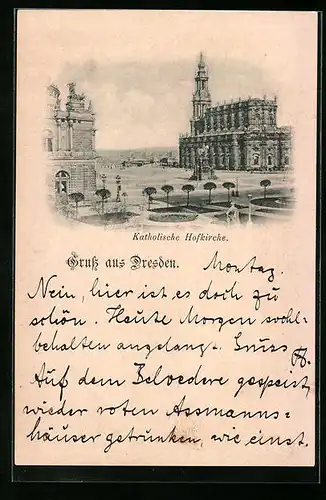 Katholische Hofkirche.
Gruß aus Dresden. Montag.
Nein, hier ist es doch zu
schön. Heute Morgen wohl-
behalten angelangt. Gruss
Auf dem Belvedere gespeist,
wieder roten Assmanns-
häuser getrunken, wie einst.